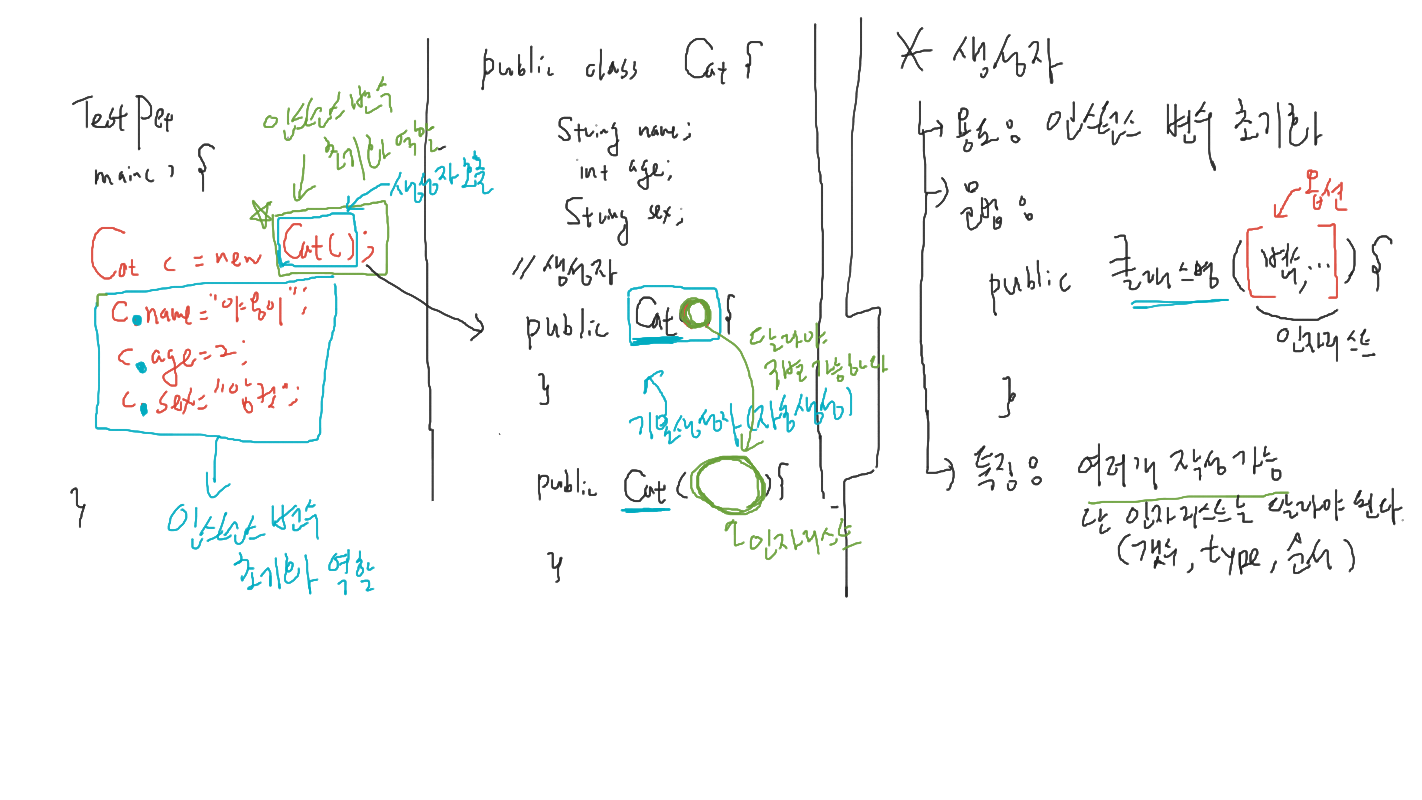 TestPet
main( ) {
인스턴스 변수
초기화 역할
생성자 호출
Cat c = new Cat( );
c.name="야옹이";
c.age=2;
c.sex="암컷";
}
인스턴스 변수
초기화 역할
public class Cat {
String name;
int age;
String sex;
// 생성자
public Cat() {
}
달라야
구별 가능하다
기본생성자 (자동생성)
public Cat ( ) {
인자리스트
}
* 생성자
용도: 인스턴스 변수 초기화
문법:
옵션
public 클래스명 ([변수,...]) {
인자리스트
}
특징: 여러개 작성 가능
단 인자리스트는 달라야 된다.
(갯수, type, 순서)